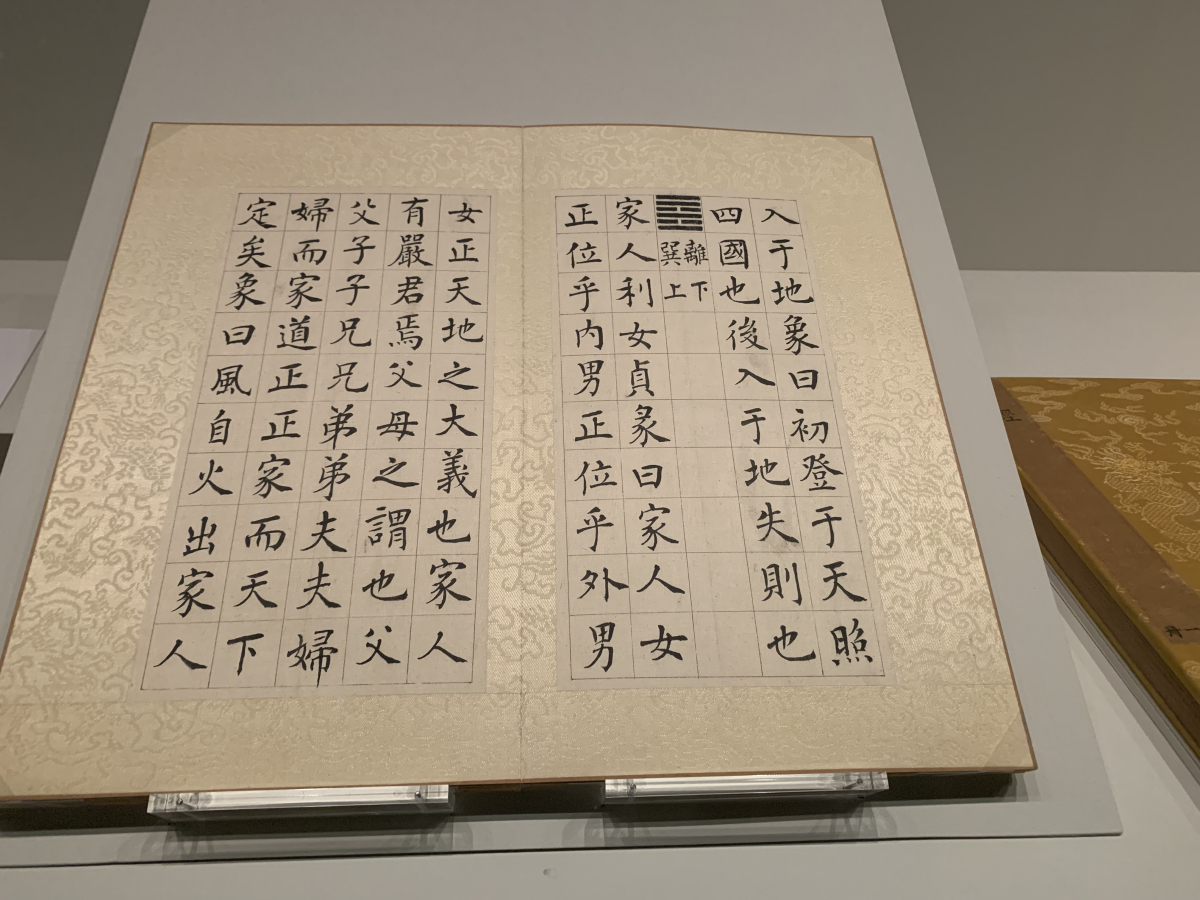 入于地象曰初登于天照
四國也後入于地失則也
䷤離下
巽上
家人利女貞彖曰家人女
正位乎内男正位乎外男
女正天地之大義也家人
有嚴君焉父母之謂也父
父子子兄兄弟弟夫夫婦
婦而家道正正家而天下
定矣象曰風自火出家人